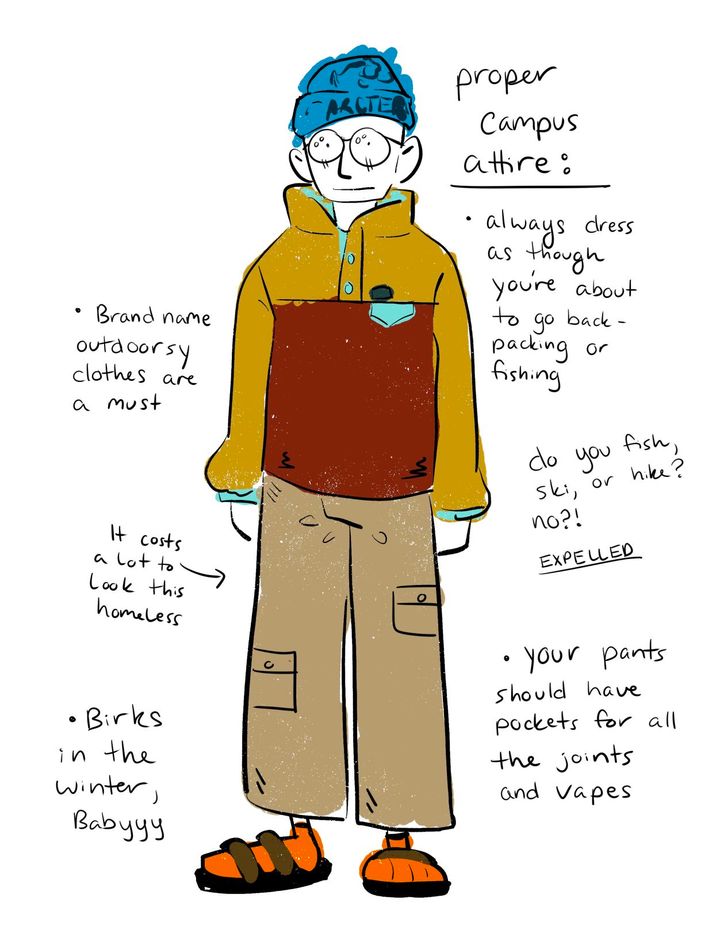 proper
campus
attire:
ARCTER
• always dress
as though
you're about
to go back-
packing or
fishing
• Brand name
outdoorsy
clothes are
a must
do you fish,
ski, or hike?
no?!
EXPELLED
It costs
a lot to
look this
homeless
• your pants
should have
pockets for all
the joints
and vapes
• Birks
in the
winter,
Babyyy